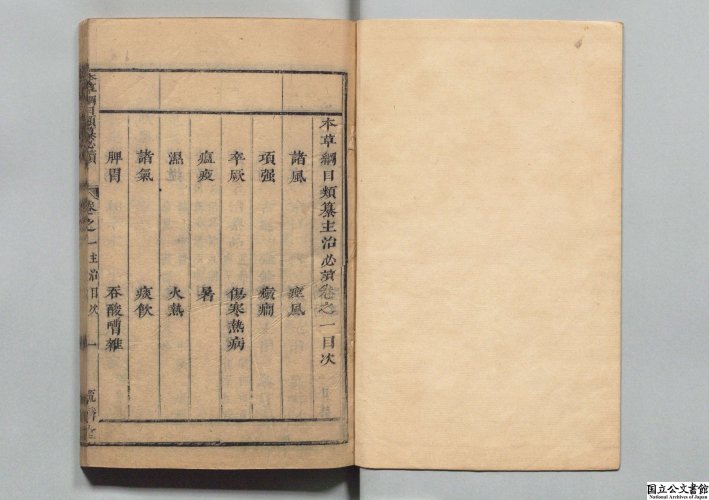 本草綱目類纂主治必讀卷之一目次
諸風 痙風
項强 癲癇
卒厥 傷寒熱病
瘟疫 暑
濕 火熱
諸氣 痰飲
脾胃 吞酸嘈雜
本草綱目類纂必讀 卷之一 主治目次 一
国立公文書館
National Archives of Japan